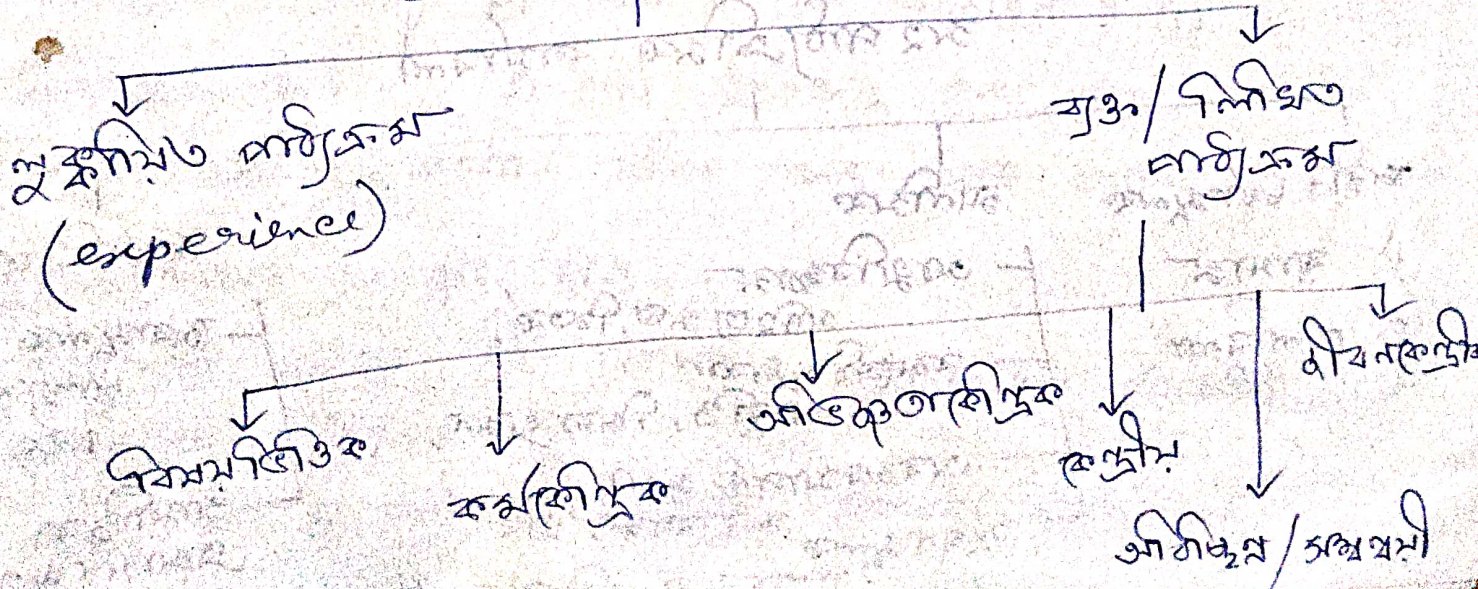 লুক্কায়িত পাঠ্যক্রম
(experience)
ব্যক্ত / লিখিত
পাঠ্যক্রম
বিষয়ভিত্তিক
কর্মকেন্দ্রিক
অভিজ্ঞতাকেন্দ্রিক
কেন্দ্রীয়
অবিচ্ছিন্ন / সমন্বয়ী
জীবনকেন্দ্রীক